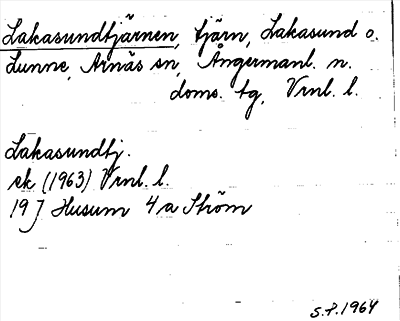 Lakasundtjärnen, tjärn, Lakasund o.
Lunne, Arnäs sn, Ångermanl. n.
doms. tg, Vrnl. l.
Lakasundtj.
ek (1963) Vrnl. l.
19 J Husum 4 a Ström
S.P. 1964